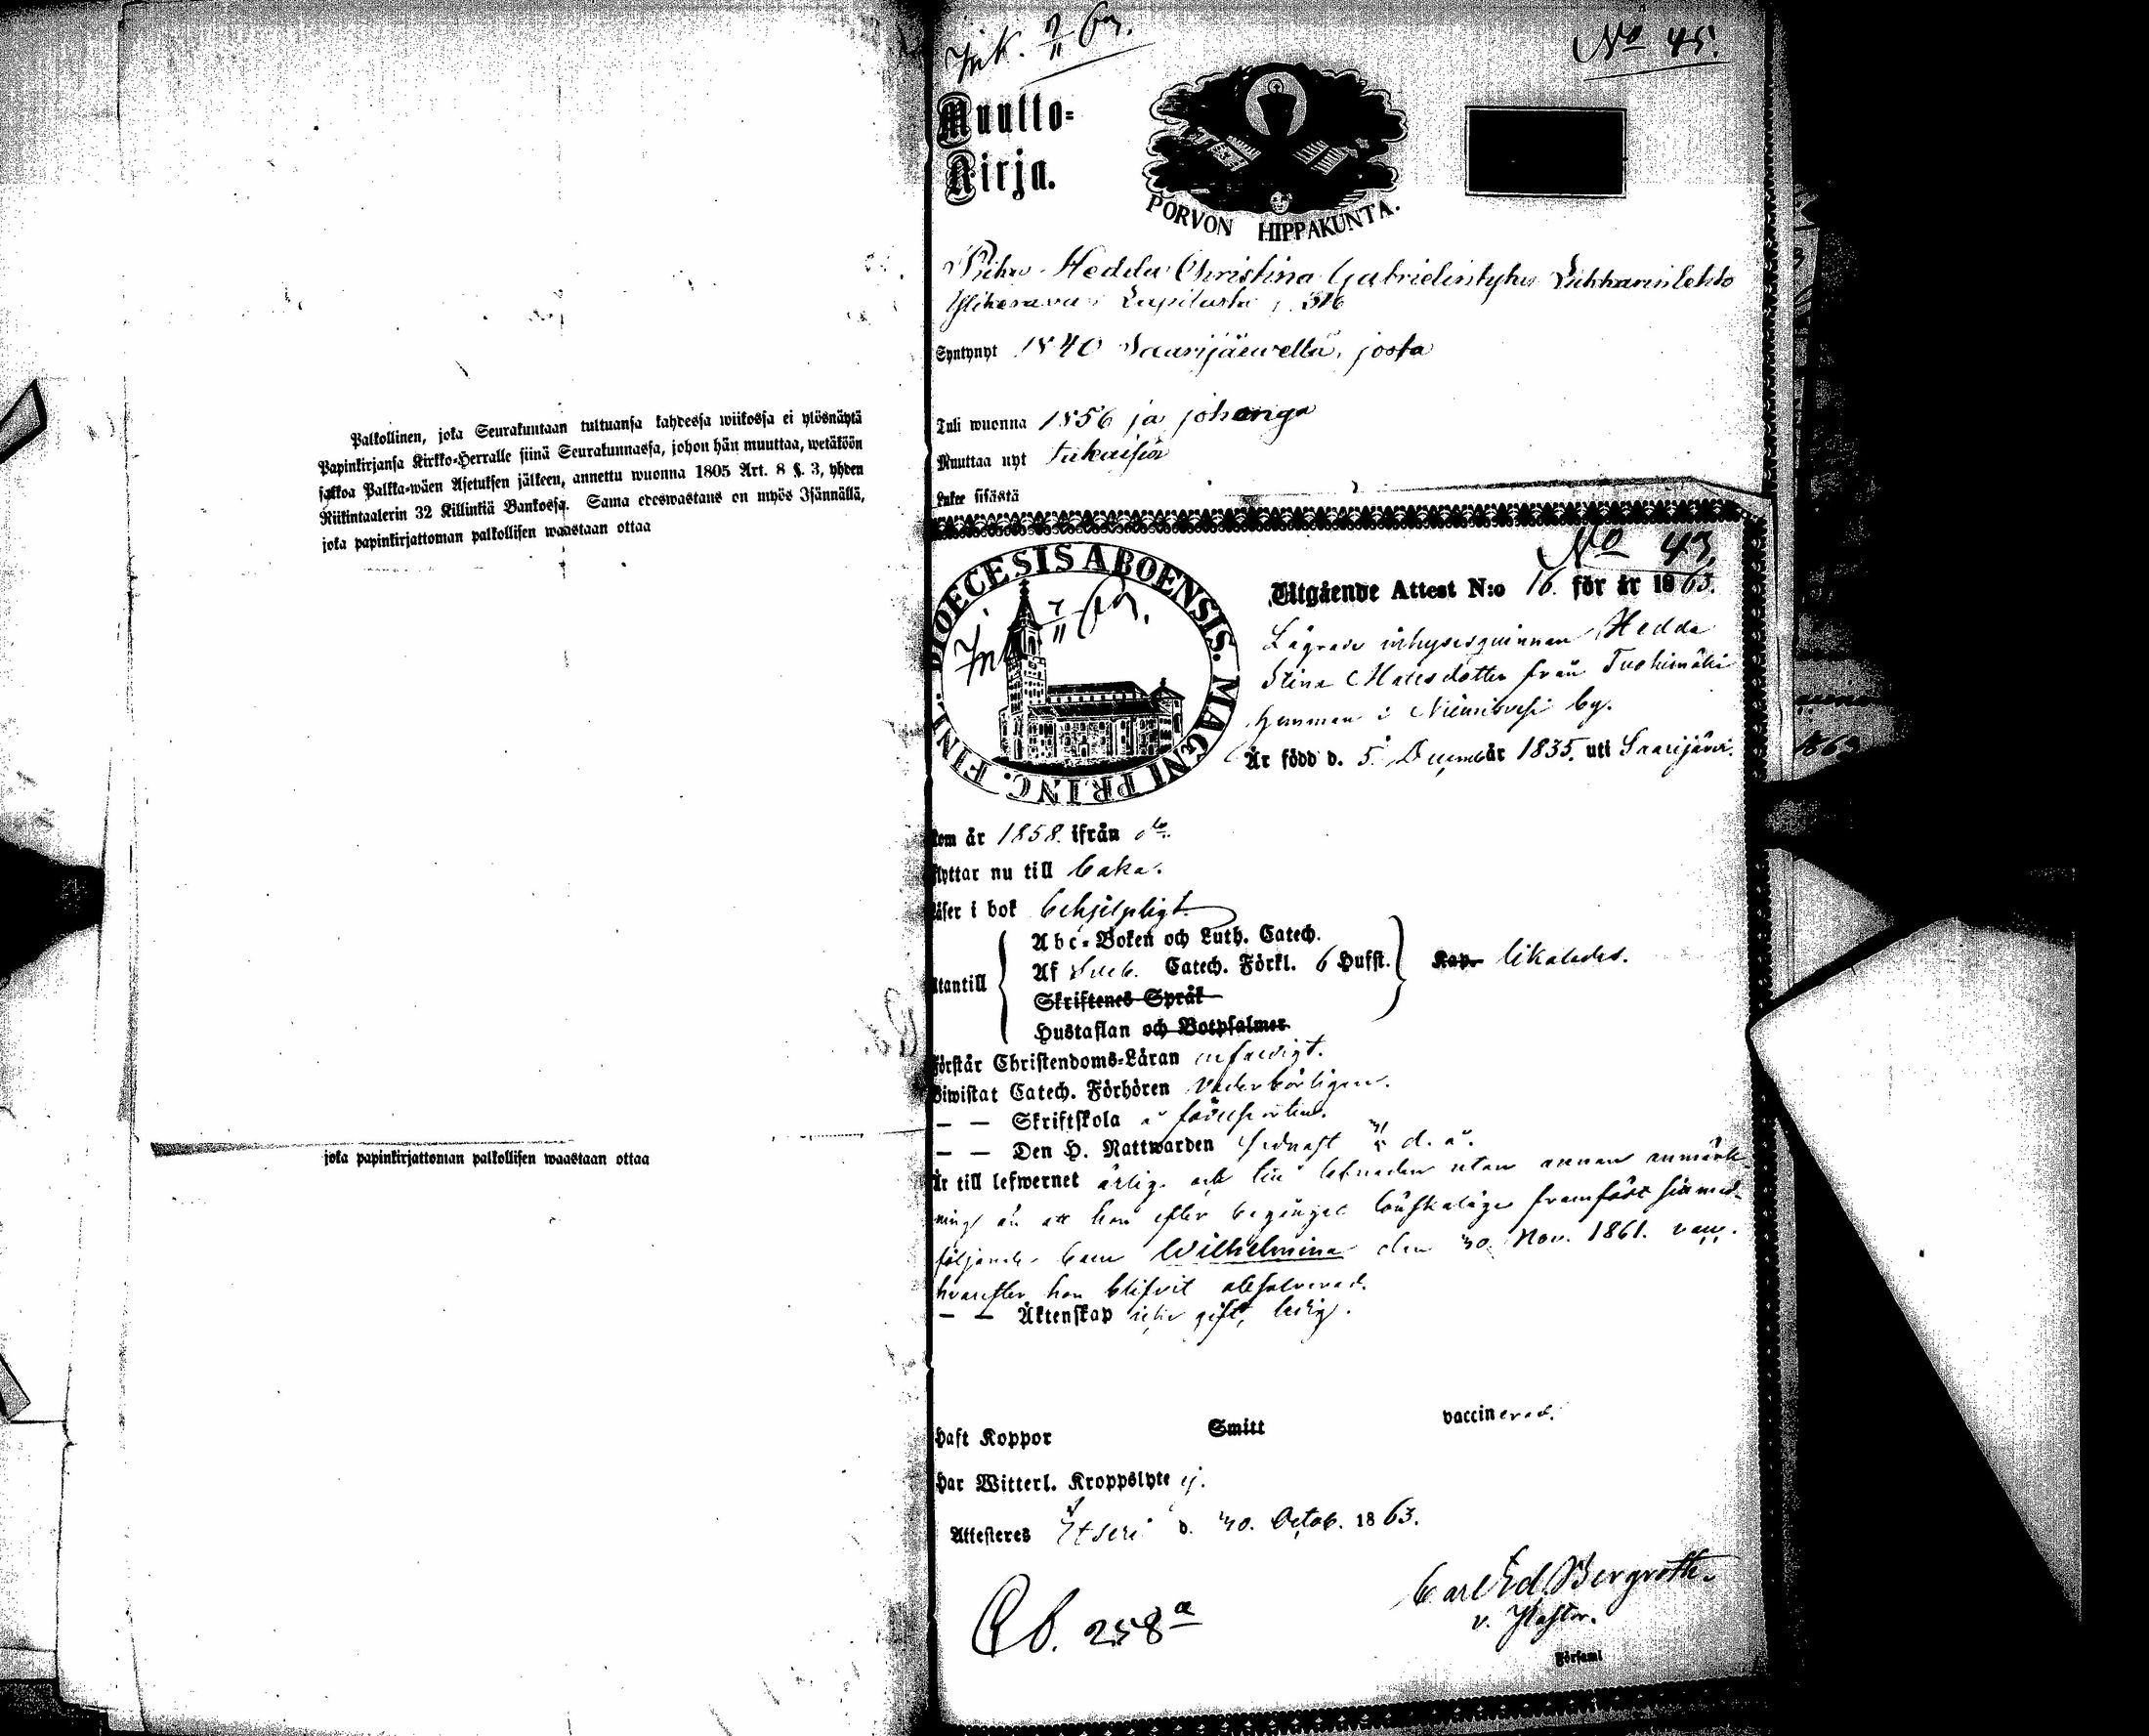 Palkollinen, joka Seurakuntaan tultuansa kahdessa wiikossa ei ylösnäytä
Papinkirjansa Kirkko-Herralle siinä Seurakunnassa, johon hän muuttaa, wetäköön
sakkoa Palkka-wäen Asetuksen jälkeen, annettu wuonna 1805 Art. 8 §. 3, yhden
Riikintaalerin 32 Killinkiä Bankossa. Sama edeswastaus on myös Isännällä,
joka papinkirjattoman palkollisen waastaan ottaa
joka papinkirjattoman palkollisen waastaan ottaa
No 45.
Muutto-
Kirja.
PORVON HIPPAKUNTA.
Piika Hedda Christina Gabrielintytär
316
Syntynyt 1840 Saarijäwellä, josta
Tuli wuonna 1856 ja johonga
Muuttaa nyt takaisin
Lukee sisästä
No 43.
DIOECESIS ABOENSIS. MAGNI PRINC. FINL.
Utgående Attest N:o 16. för år 1863.
Lägrade inhysesqvinnan Hedda
Stina Matsdotter från Tuohimäki
hemman i by.
Är född d. 5 Decemb år 1835. uti Saarijärvi.
Kom år 1858. ifrån do.
Flyttar nu till baka.
Läser i bok behjelpligt.
Abc-Boken och Luth. Catech.
Utantill Af Sveb. Catech. Förkl. 6 Hufst. Kap. likaledes.
Skriftenes Språk
Hustaflan och Botpsalmer
Förstår Christendoms-Läran enfaldigt.
Biwistat Catech. Förhören vederbörligen.
— — Skriftskola å födelseorten.
— — Den H. Nattwarden sednast d. å.
Är till lefwernet ärlig och till lefnaden utan annan anmärk-
ning än att hon efter begånget lönskaläge framfödt sin med-
följande barn Wilhelmina den 30. Nov. 1861.
hvarefter hon blifvit absolverad.
— — Äktenskap icke gift, ledig.
Haft Koppor Smitt vaccinerad.
Har Witterl. Kroppslyte ej.
Attesteres Etseri d. 30. Octob. 1863.
Carl Ed. Bergroth.
v. Pastor.
258a
Församl